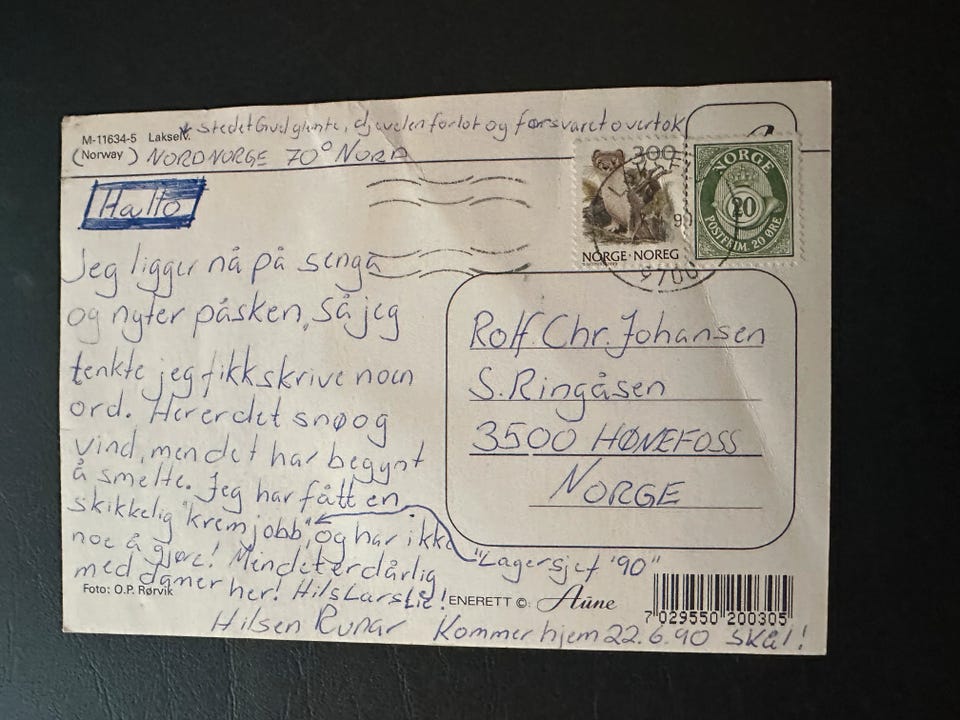 M-11634-5 Lakselv.
* Stedet Gud glemte, djevelen forlot og forsvaret overtok
(Norway) NORDNORGE 70° NORD
300
NORGE · NOREG
NORGE
20
POSTFRIM. 20 ØRE
90
9700
Hallo
Jeg ligger nå på senga
og nyter påsken, så jeg
tenkte jeg fikk skrive noen
ord. Her er det snø og
vind, men det har begynt
å smelte. Jeg har fått en
skikkelig "kremjobb", og har ikke
noe å gjøre! Men det er dårlig
med damer her! Hils Lars Lie!
Hilsen Runar Kommer hjem 22.6.90 SKÅL!
"Lagersjef '90"
Rolf. Chr. Johansen
S. Ringåsen
3500 HØNEFOSS
NORGE
Foto: O.P. Rørvik
ENERETT ©: Aune
7 029550 200305